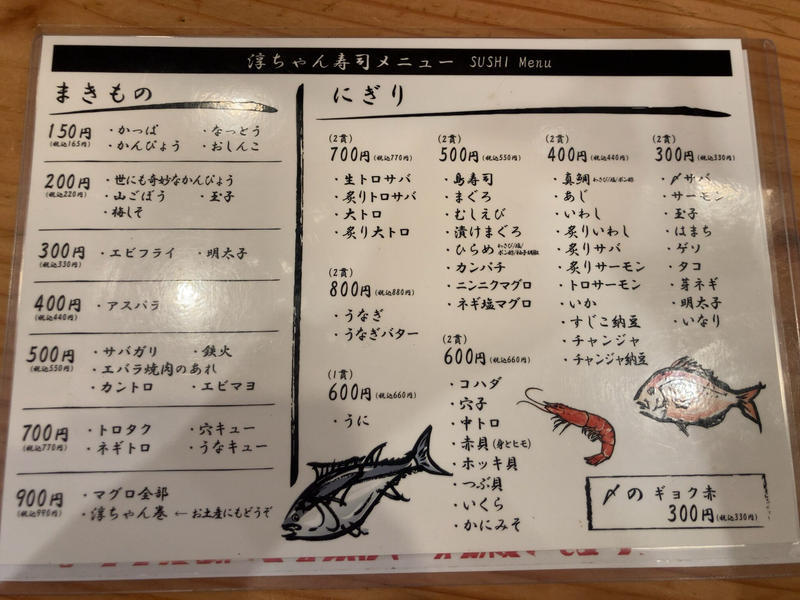 淳ちゃん寿司メニュー SUSHI Menu
まきもの
150円(税込165円)
・かっぱ ・なっとう
・かんぴょう ・おしんこ
200円(税込220円)
・世にも奇妙なかんぴょう
・山ごぼう ・玉子
・梅しそ
300円(税込330円)
・エビフライ ・明太子
400円(税込440円)
・アスパラ
500円(税込550円)
・サバガリ ・鉄火
・エバラ焼肉のあれ
・カントロ ・エビマヨ
700円(税込770円)
・トロタク ・穴キュー
・ネギトロ ・うなキュー
900円(税込990円)
・マグロ全部
・淳ちゃん巻 ←お土産にもどうぞ
にぎり
(2貫)
700円(税込770円)
・生トロサバ
・炙りトロサバ
・大トロ
・炙り大トロ
(2貫)
800円(税込880円)
・うなぎ
・うなぎバター
(1貫)
600円(税込660円)
・うに
(2貫)
500円(税込550円)
・島寿司
・まぐろ
・むしえび
・漬けまぐろ
・ひらめ
・カンパチ
・ニンニクマグロ
・ネギ塩マグロ
(2貫)
600円(税込660円)
・コハダ
・穴子
・中トロ
・赤貝(身とヒモ)
・ホッキ貝
・つぶ貝
・いくら
・かにみそ
(2貫)
400円(税込440円)
・真鯛 わさび/塩/ポン酢
・あじ
・いわし
・炙りいわし
・炙りサバ
・炙りサーモン
・トロサーモン
・いか
・すじこ納豆
・チャンジャ
・チャンジャ納豆
(2貫)
300円(税込330円)
・〆サバ
・サーモン
・玉子
・はまち
・ゲソ
・タコ
・芽ネギ
・明太子
・いなり
〆の ギョク赤
300円(税込330円)